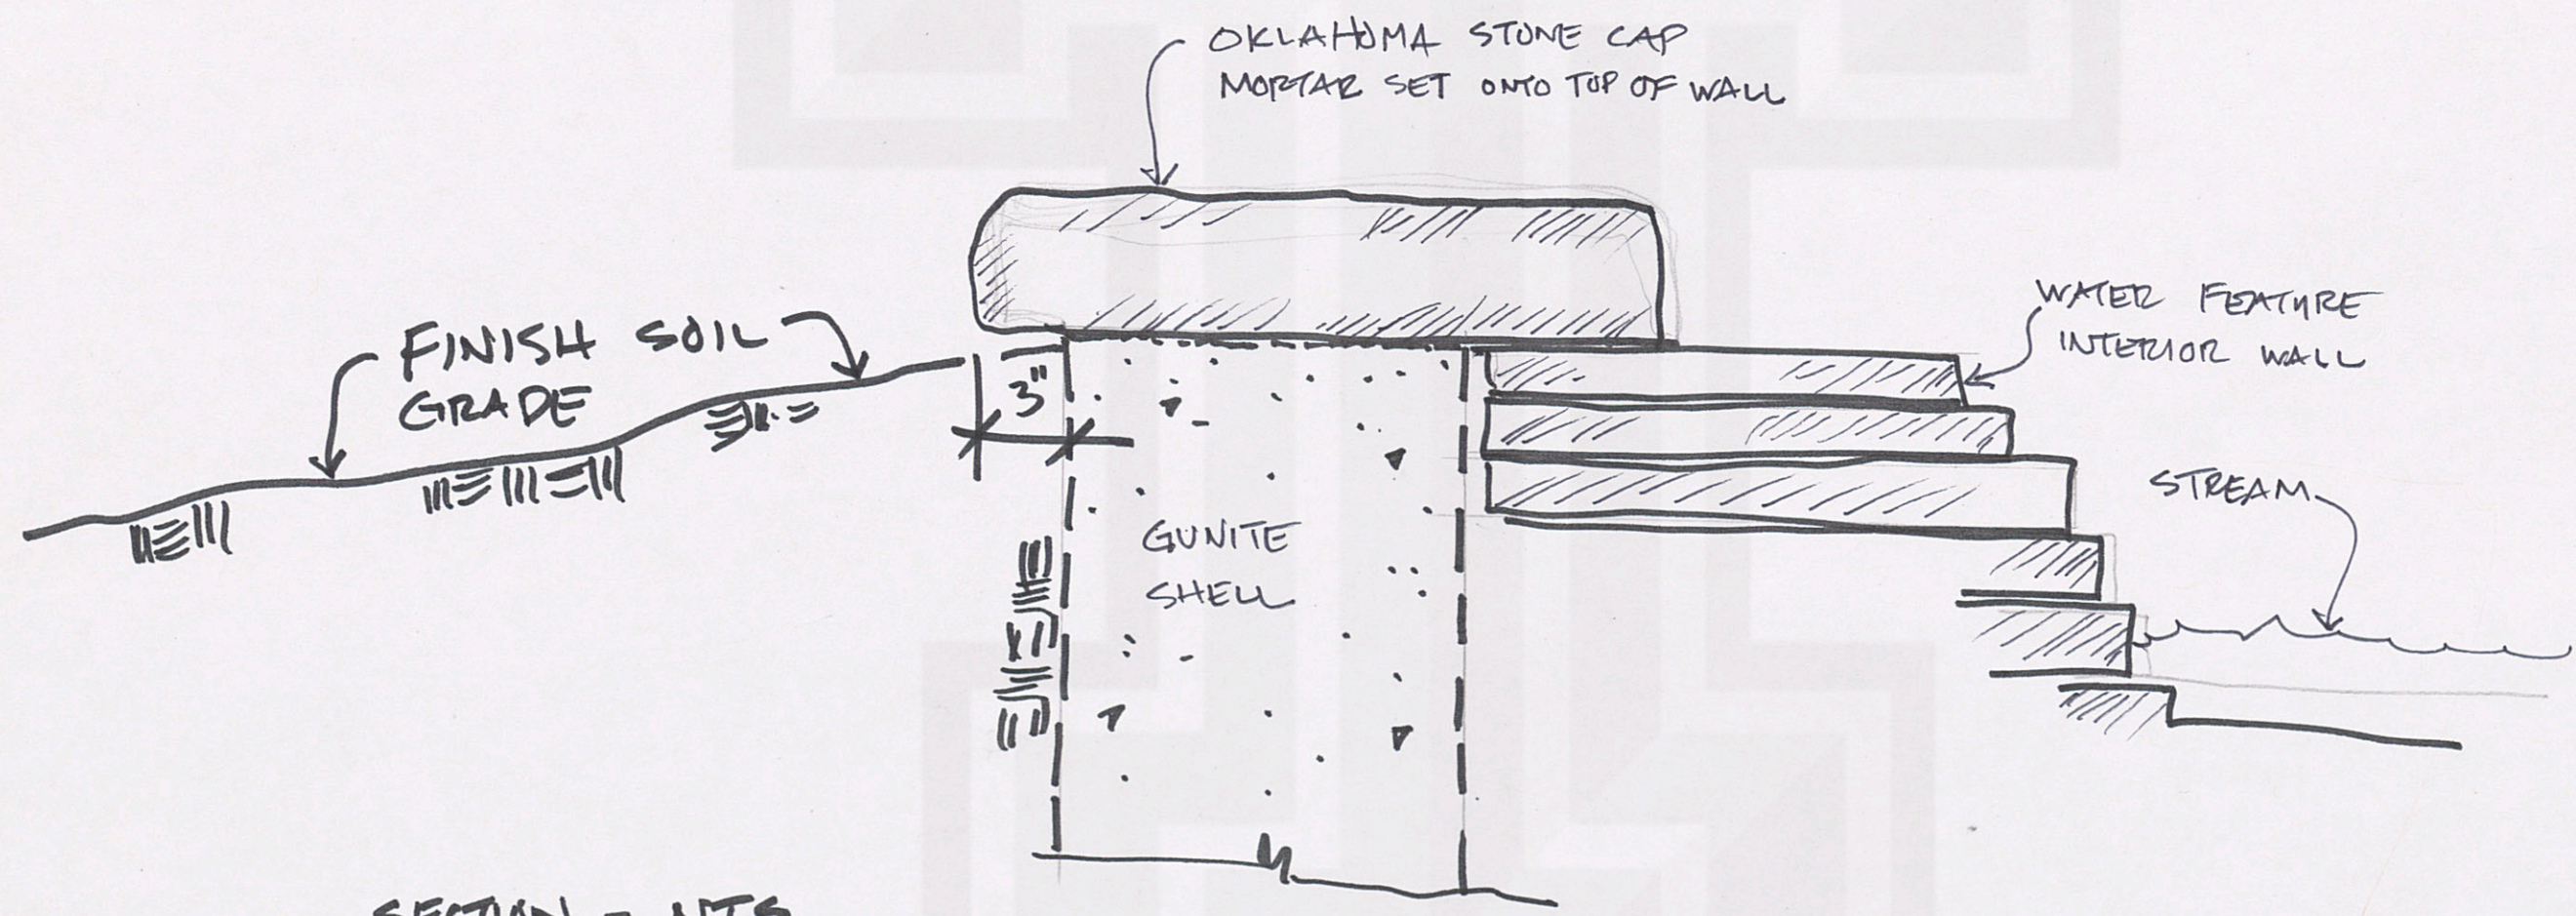 OKLAHOMA STONE CAP
MORTAR SET ONTO TOP OF WALL
WATER FEATURE
INTERIOR WALL
FINISH SOIL
GRADE
3"
STREAM
GUNITE
SHELL
SECTION - NTS